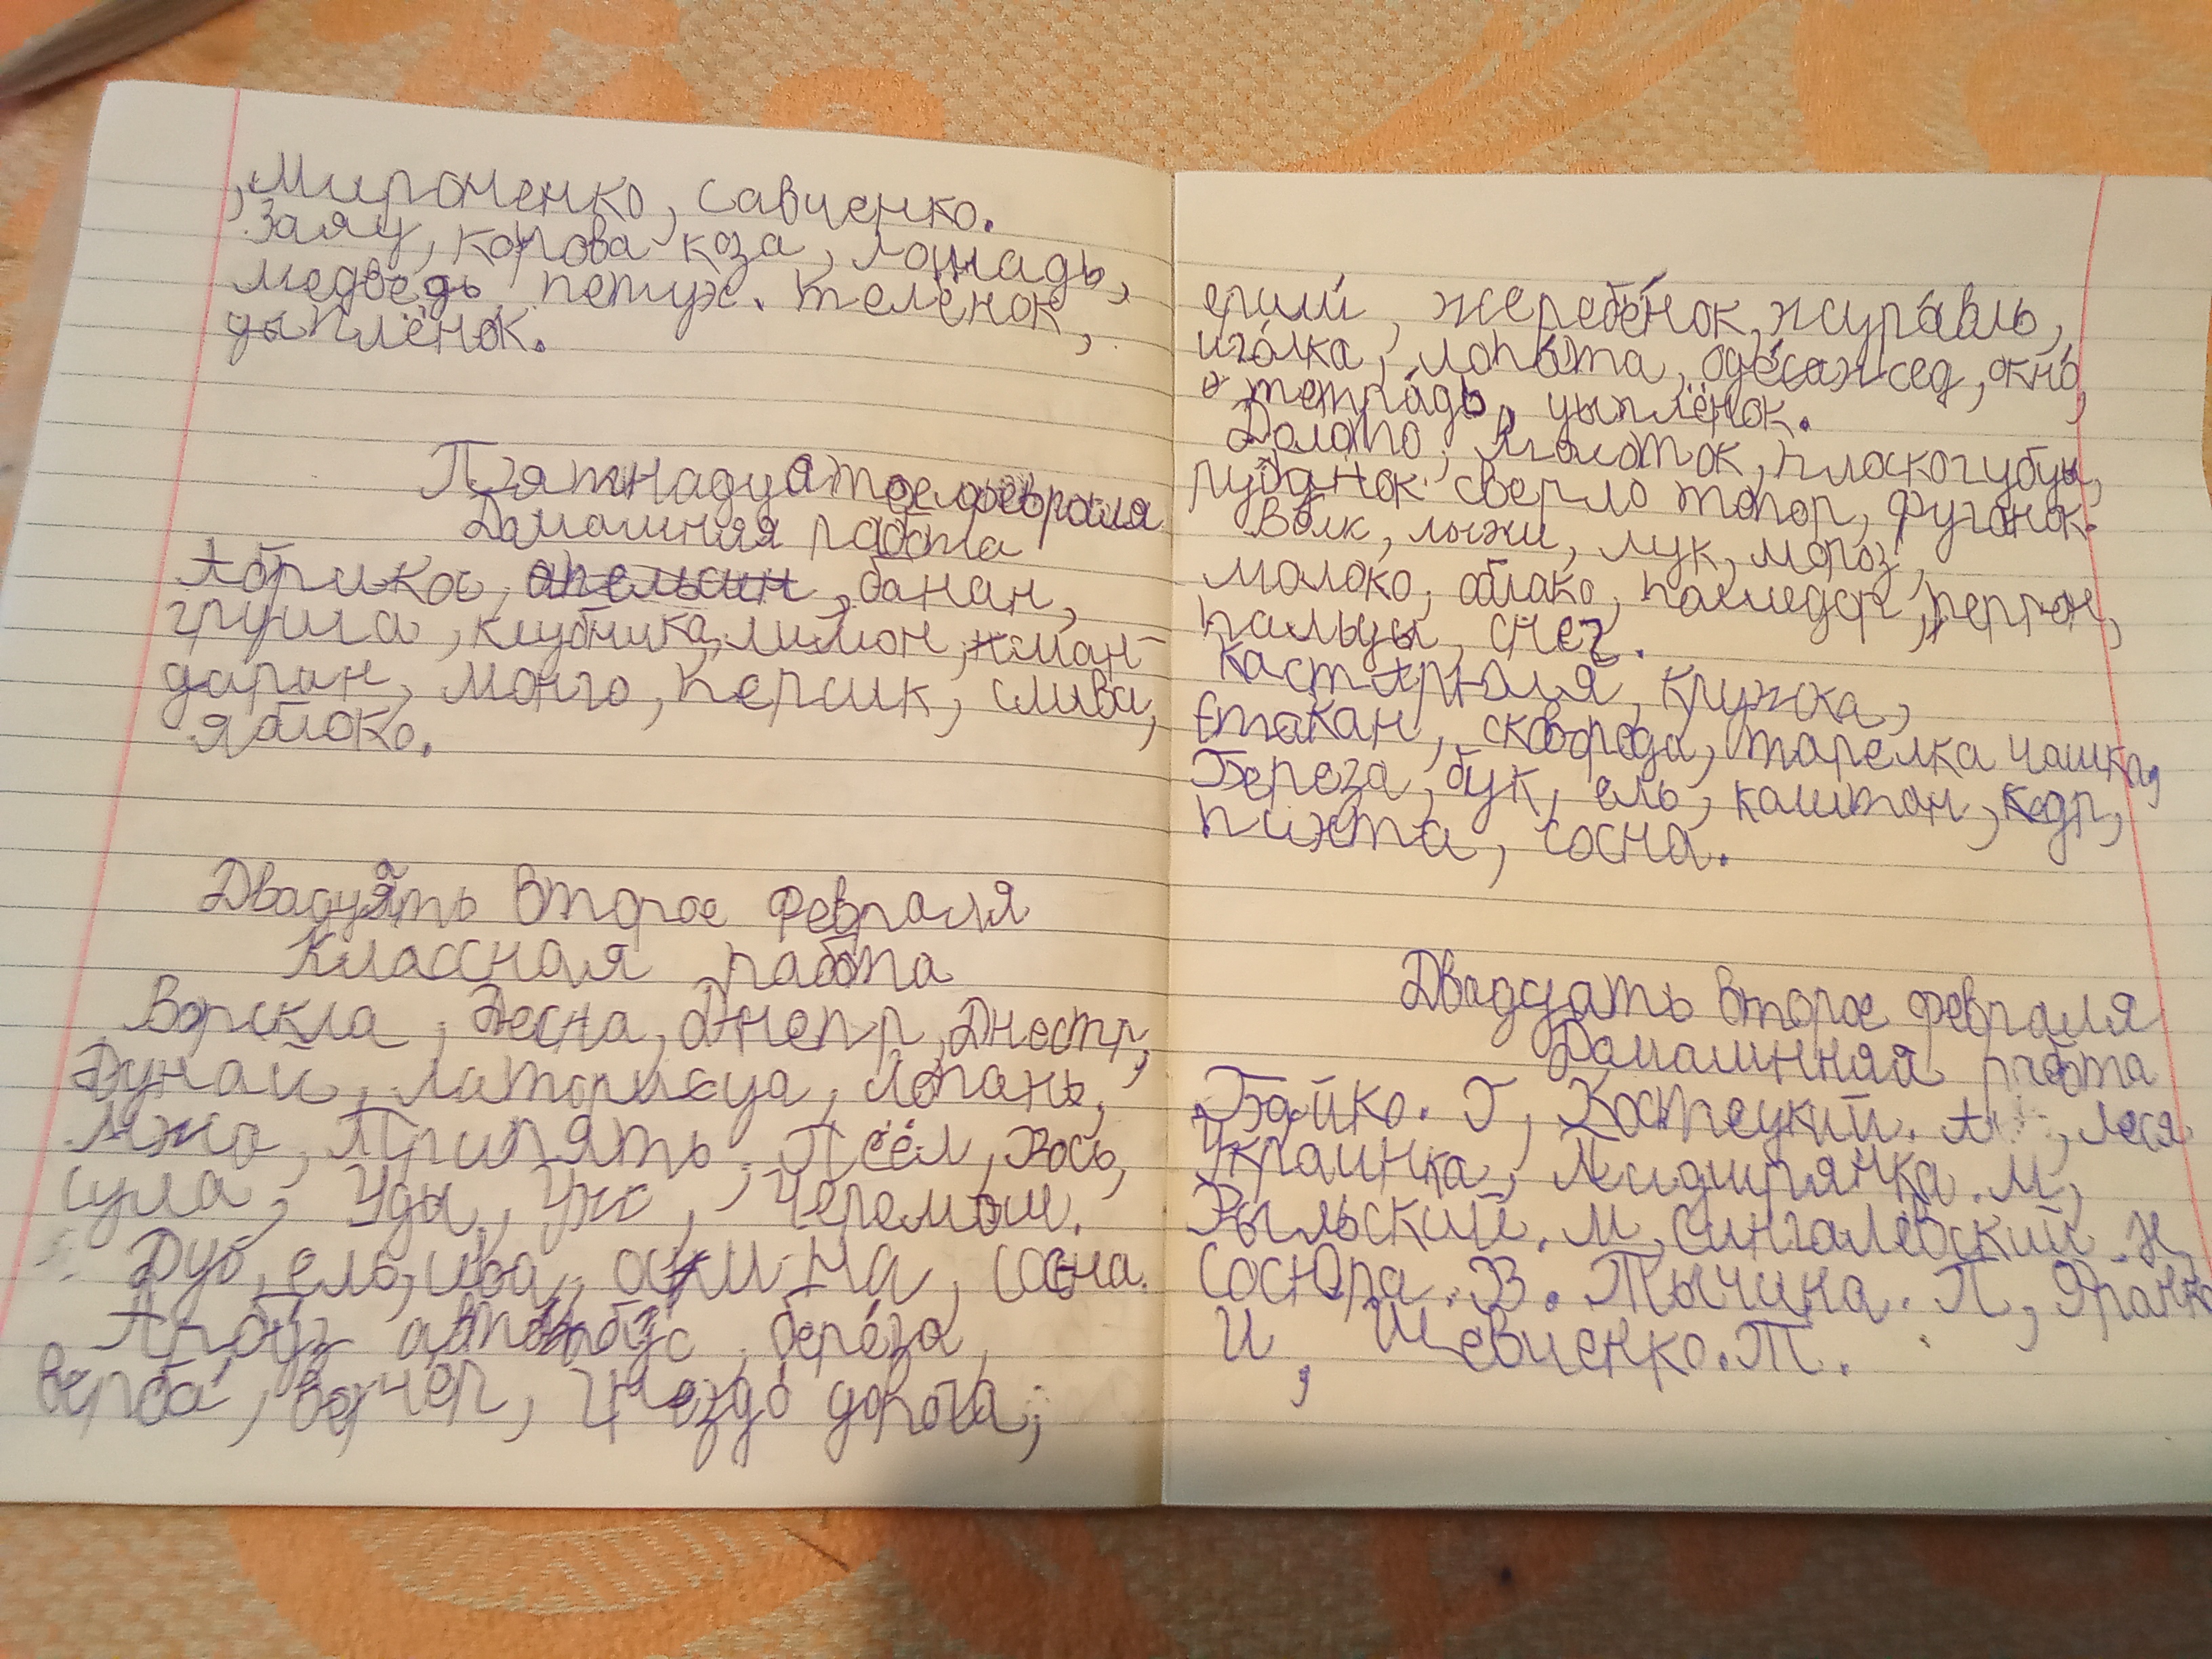 , Мироненко, Савченко.
Заяц, корова коза, лошадь,
медведь, петух. Телёнок,
цыплёнок.
Пятнадцатое февраля
Домашняя работа
Абрикос, апельсин, банан,
груша, клубника, лимон, ман-
дарин, манго, персик, слива,
яблоко.
Двадцять второе февраля
Классная работа
Ворскла, Десна, Днепр, Днестр,
Дунай, Латорица, Лопань,
Мжа, Припять, Псёл, Рось,
Сула, Уды, Уж, Черемош.
Дуб, ель, ива, осина, сосна.
Арбуз автобус, берёза,
верба, вечер, гнездо дорога,
ерши, жеребёнок, журавль,
иголка, лопата, окно,
тетрадь, цыплёнок.
Долото, молоток, плоскогубцы,
рубанок сверло топор, фуганок.
Волк, лыжи, лук, мороз,
молоко, облако, помидор, перрон,
пальцы, снег.
Кастрюля, кружка,
стакан, сковорода, тарелка чашка,
Береза, бук, ель, каштан, кедр,
пихта, сосна.
Двадцать второе февраля
Домашняя работа
Бойко. Г, Костецкий. А, Леся
Украинка, М,
Рыльский. М, Сингаевский. Н,
Сосюра. В. Тычина. П,
И, Шевченко. Т.